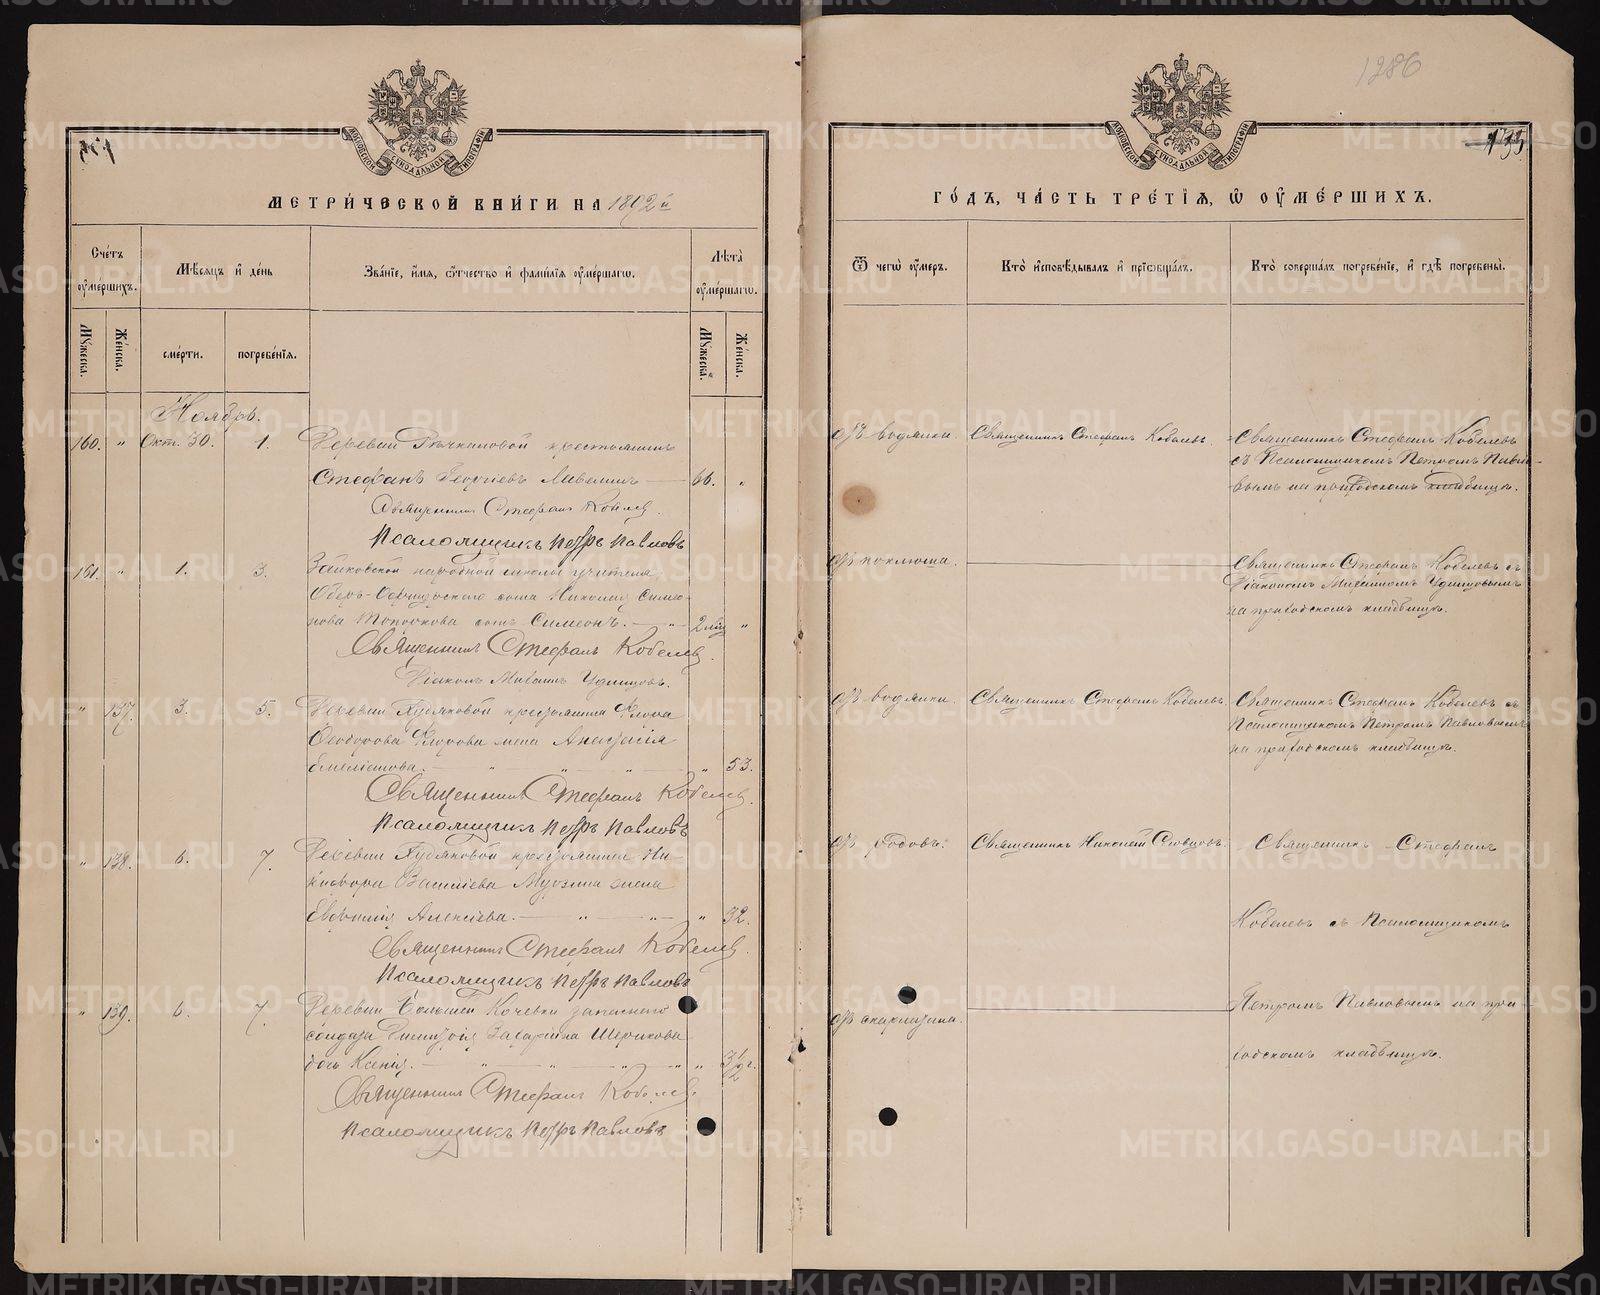 1286
133
МОСКОВСКОЙ СУНОДАЛЬНОЙ ТИПОГРАФІИ
МЕТРИ́ЧЕСКОЙ КНИ́ГИ НА 1892й
Сче́тъ оу҆ме́ршихъ.
Мѣ́сяцъ и҆ де́нь
Зва́ніе, и҆́мя, ѻ҆́тчество и҆ фамилія оу҆ме́ршагѡ.
Лѣ́та оу҆ме́ршагѡ.
Мꙋ́жеска.
Же́нска.
сме́рти.
погребе́нія.
Мꙋ́жеска.
Же́нска.
Ноябрь.
160. " Окт. 30. 1. Деревни крестьянинъ
Стефанъ Георгіевъ 66. "
Священникъ Стефанъ Кобелев.
Псаломщикъ Петръ Павловъ
161. " 1. 3. Зайковской народной школы учителя
Оберъ-Офицерскаго сына Николая Симео-
нова Топоркова сынъ Симеонъ. " 2 "
Священникъ Стефанъ Кобелев.
Діаконъ Михаилъ Удинцовъ.
" 137. 3. 5. Деревни крестьянина Флора
Ѳеодорова Флорова жена Анастасія
Емеліанова. " " " " 53.
Священникъ Стефанъ Кобелев.
Псаломщикъ Петръ Павловъ
" 138. 6. 7. Деревни крестьянина Ни-
кифора Василіева жена
Евфимія Алексіева. " " " 32.
Священникъ Стефанъ Кобелев.
Псаломщикъ Петръ Павловъ
" 139. 6. 7. Деревни Большой Кочевки запаснаго
солдата Димитрія Захаріина Шерикова
дочь Ксенія. " " " " " 3½ г.
Священникъ Стефанъ Кобелев.
Псаломщикъ Петръ Павловъ
ГО́ДЪ, ЧА́СТЬ ТРЕ́ТІЯ, Ѡ҆ ОУ҆МЕ́РШИХЪ.
Ѿ чегѡ̀ оу҆́меръ.
Кто̀ и҆сповѣ́дывалъ и҆ прїѡбща́лъ.
Кто̀ соверша́лъ погребе́ніе, и҆ гдѣ̀ погребены̀.
отъ водянки. Священникъ Стефанъ Кобелевъ. Священникъ Стефанъ Кобелевъ
съ Псаломщикомъ Петромъ Павло-
вымъ на приходскомъ кладбищѣ.
отъ коклюша. Священникъ Стефанъ Кобелевъ съ
Діакономъ Михаиломъ Удинцовымъ
на приходскомъ кладбищѣ.
отъ водянки. Священникъ Стефанъ Кобелевъ. Священникъ Стефанъ Кобелевъ съ
Псаломщикомъ Петромъ Павловымъ
на приходскомъ кладбищѣ.
отъ родовъ. Священникъ Николай Словцовъ. Священникъ Стефанъ
Кобелевъ съ Псаломщикомъ
Петромъ Павловымъ на при-
отъ скарлатина.
ходскомъ кладбищѣ.
METRIKI.GASO-URAL.RU